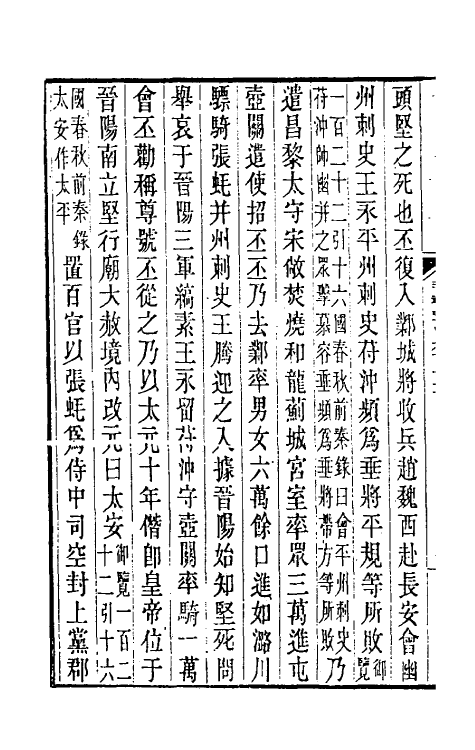 頭堅之死也丕復入鄴城將收兵趙魏西赴長安會幽
州刺史王永平州刺史苻沖頻爲垂將平規等所敗御覽
一百二十二引十六國春秋前秦錄曰會平州刺史
苻沖帥幽并之眾擊慕容垂頻爲垂將帶方等所敗乃
遣昌黎太守宋做焚燒和龍薊城宮室率眾三萬進屯
壺關遣使招丕丕乃去鄴率男女六萬餘口進如潞川
驃騎張蚝并州刺史王騰迎之入據晉陽始知堅死問
舉哀于晉陽三軍縞素王永留苻沖守壺關率騎一萬
會丕勸稱尊號丕從之乃以太元十年僭卽皇帝位于
晉陽南立堅行廟大赦境內改元曰太安御覽一百二十二引十六
國春秋前秦錄太安作太平置百官以張蚝爲侍中司空封上黨郡